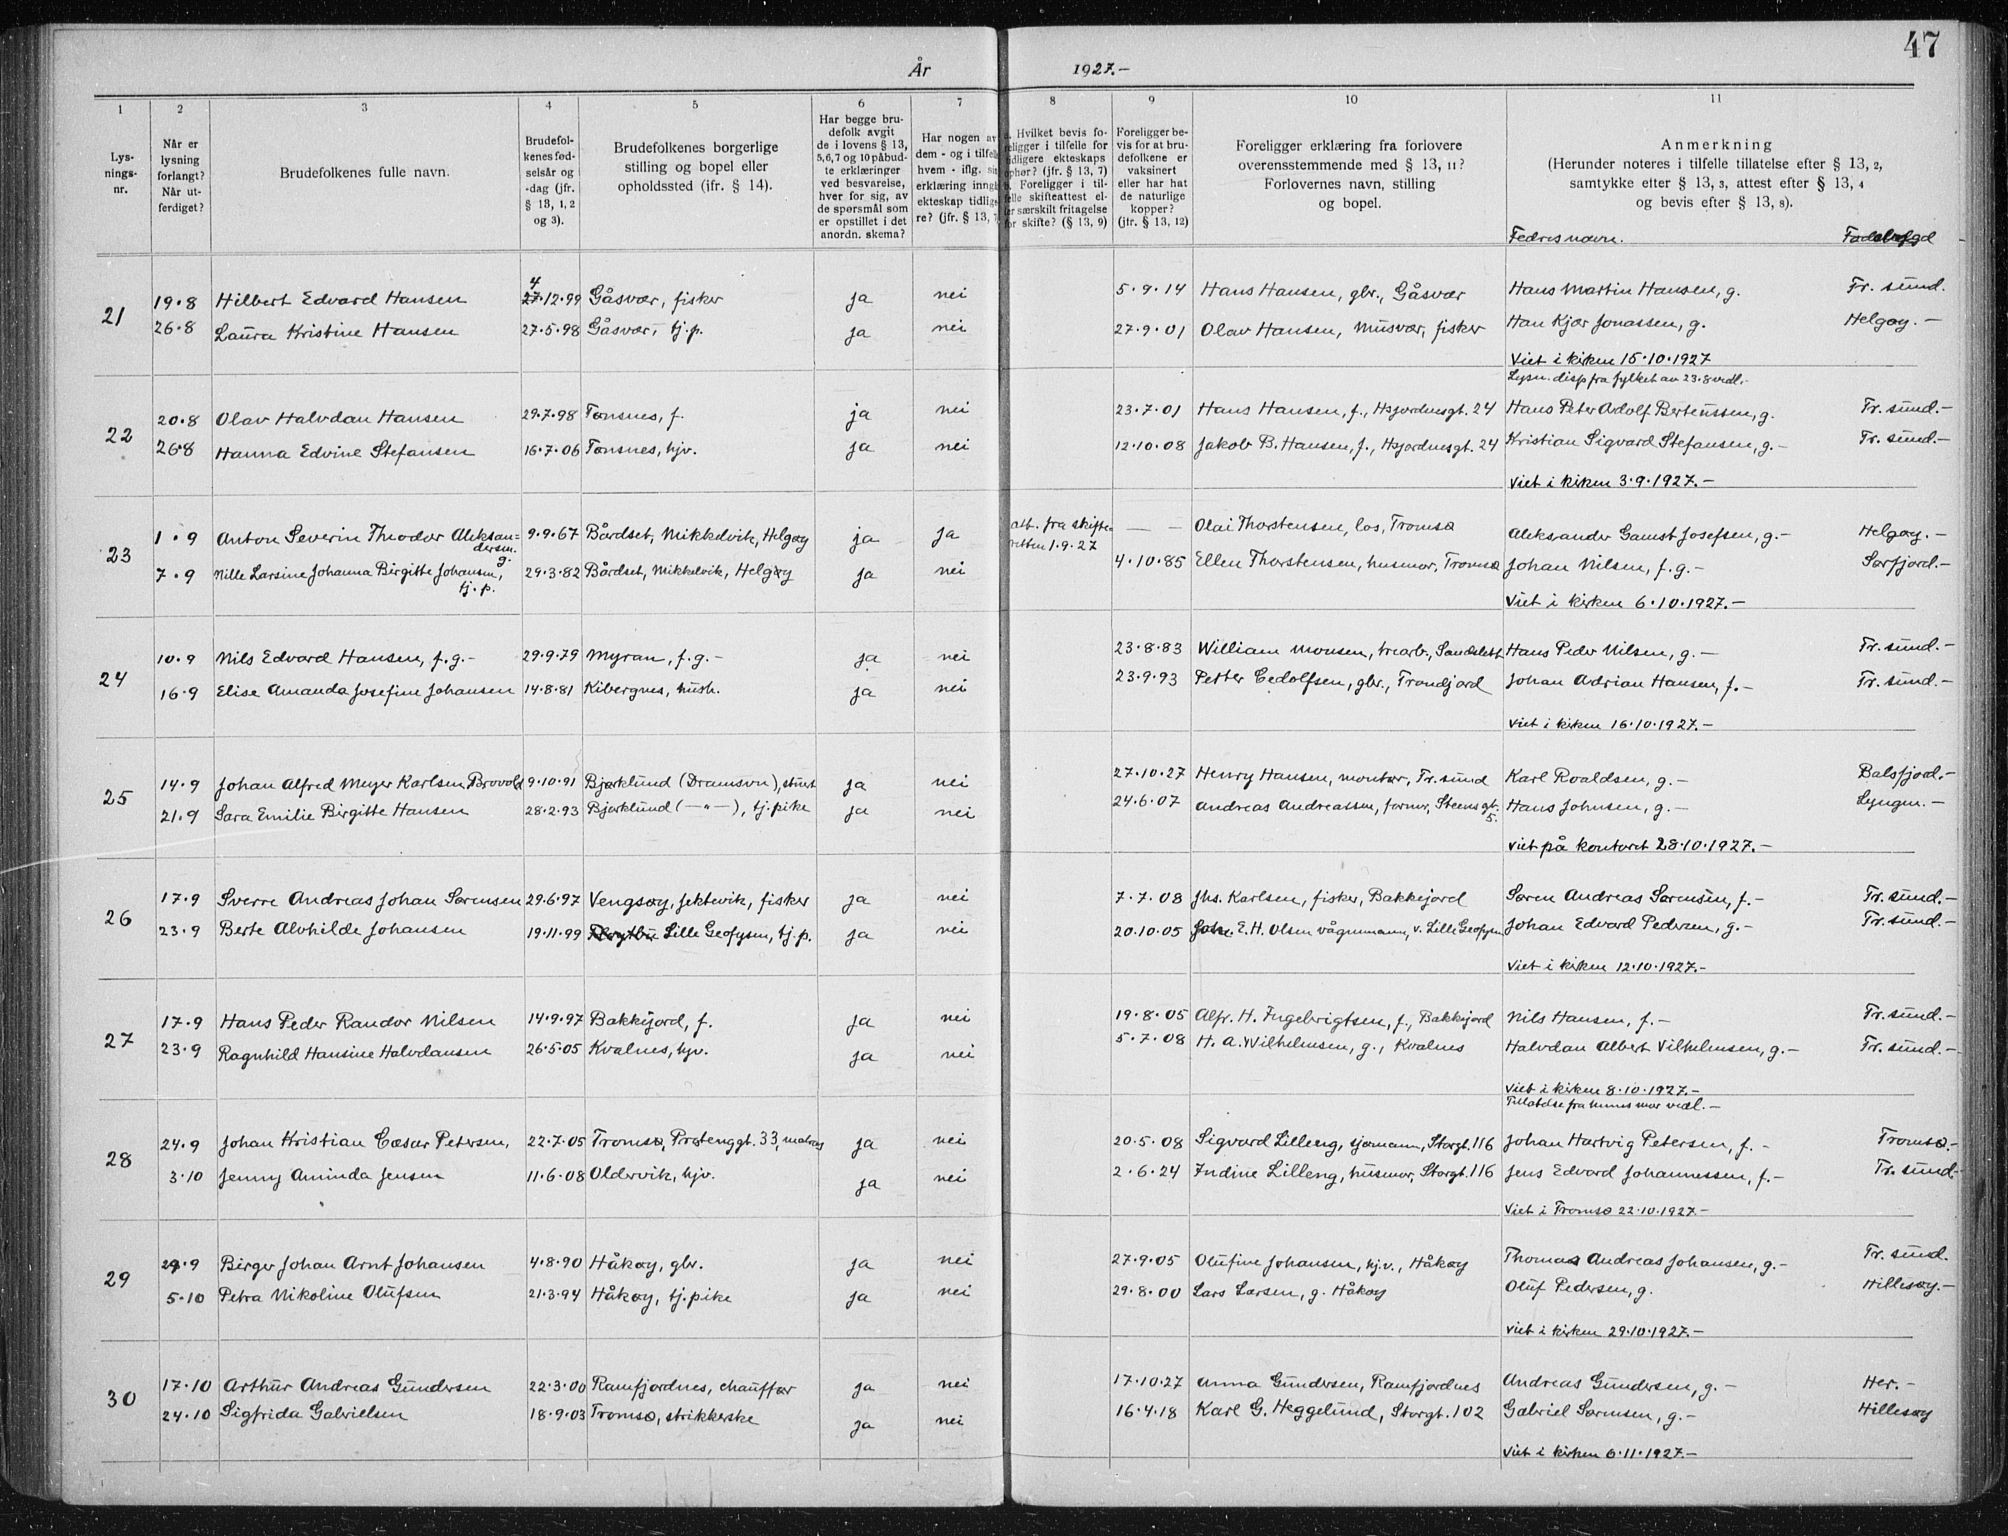 47
År 1927.-
1 2 3 4 5 6 7 8 9 10 11
Lys-
nings-
nr.
Når er
lysning
forlangt?
Når ut-
ferdiget?
Brudefolkenes fulle navn.
Brudefol-
kenes fød-
selsår og
-dag (jfr.
§ 13, 1, 2
og 3).
Brudefolkenes borgerlige
stilling og bopel eller
opholdssted (jfr. § 14).
Har begge bru-
defolk avgit
de i lovens § 13,
5,6,7 og 10 påbud-
te erklæringer
ved besvarelse,
hver for sig, av
de spørsmål som
er opstillet i det
anordn. skema?
Har nogen av
dem - og i tilfelle
hvem - iflg. sin
erklæring inngå
ekteskap tidlige
re? (jfr. § 13, 7
Hvilket bevis fo-
religger i tilfelle for
tidligere ekteskaps
ophør? (jfr. § 13, 7)
Foreligger i til-
felle skifteattest el-
ler særskilt fritagelse
for skifte? (§ 13, 9)
Foreligger be-
vis for at bru-
defolkene er
vaksinert
eller har hat
de naturlige
kopper?
(jfr. § 13, 12)
Foreligger erklæring fra forlovere
overensstemmende med § 13, 11?
Forlovernes navn, stilling
og bopel.
Anmerkning
(Herunder noteres i tilfelle tillatelse efter § 13, 2,
samtykke efter § 13, 3, attest efter § 13, 4
og bevis efter § 13, 8).
Fedres navn.
21
19.8 Hilbert Edvard Hansen 4 27.12.99 Gåsvær, fisker ja nei 5.9.14 Hans Hansen, gbr., Gåsvær Hans Martin Hansen, g. Tr. sund.
26.8 Laura Kristine Hansen 27.5.98 Gåsvær, tj.p. ja nei 27.9.01 Olav Hansen, Musvær, fisker Han Kjær Jonassen, g. Helgøy.-
Viet i kirken 15.10.1927
Lysn. disp fra fylket av 23.8 vedl.-
22
20.8 Olav Halvdan Hansen 29.7.98 Tønsnes, f. ja nei 23.7.01 Hans Hansen, f., Hsjordnesgt. 24 Hans Peter Adolf Berteussen, g. Tr. sund.-
26.8 Hanna Edvine Stefansen 16.7.06 Tønsnes, hjv. ja nei 12.10.08 Jakob B. Hansen, f., Hsjordnesgt. 24 Kristian Sigvard Stefansen, g.- Tr. sund.-
Viet i kirken 3.9.1927.-
23
1.9 Anton Severin Theodor Aleksan-
dersen. g. 9.9.67 Bårdset, Mikkelvik, Helgøy ja ja att. fra skifte-
retten 1.9.27 — — Olai Thorstensen, los, Tromsø Aleksander Gamst Josefsen, g.- Helgøy.-
7.9 Nille Larsine Johanna Birgitte Johansen,
tj.p. 29.3.82 Bårdset, Mikkelvik, Helgøy ja nei 4.10.85 Ellen Thorstensen, husmor, Tromsø Johan Nilsen, f.g.- Sørfjord.-
Viet i kirken 6.10.1927.-
24
10.9 Nils Edvard Hansen, f.g.- 29.9.79 Myran, f.g.- ja nei 23.8.83 William Monsen, trearb., Sandslett Hans Peder Nilsen, g.- Tr. sund.-
16.9 Elise Amanda Josefine Johansen 14.8.81 Kibergnes, hush. ja nei 23.9.93 Petter Cedolfsen, gbr., Trondjord Johan Adrian Hansen, f.- Tr. sund.-
Viet i kirken 16.10.1927.-
25
14.9 Johan Alfred Meyer Karlsen Brovold 9.10.91 Bjørklund (Dramsvn), stuert ja nei 27.10.27 Henry Hansen, montør, Tr. sund Karl Roaldsen, g.- Balsfjord.-
21.9 Sara Emilie Birgitte Hansen 28.2.93 Bjørklund (—"—), tj.pike ja nei 24.6.07 Andreas Andreassen, former, Steensgt.
5. Hans Johnsen, g.- Lyngen.-
Viet på kontoret 28.10.1927.-
26
17.9 Sverre Andreas Johan Sørensen 29.6.97 Vengsøy, Jektevik, fisker ja nei 7.7.08 Jhs. Karlsen, fisker, Bakkejord Søren Andreas Sørensen, f.- Tr. sund.-
23.9 Berte Alvhilde Johansen 19.11.99 Lille Geofysen, tj.p. ja nei 20.10.05 E.H. Olsen vågnmann, v. Lille Geofysen Johan Edvard Pedersen, g.- Tr. sund.-
Viet i kirken 12.10.1927.-
27
17.9 Hans Peder Randor Nilsen 14.9.97 Bakkejord, f. ja nei 19.8.05 Alfr. H. Ingebrigtsen, f., Bakkejord Nils Hansen, f.- Tr. sund.-
23.9 Ragnhild Hansine Halvdansen 26.5.05 Kvalnes, hjv. ja nei 5.7.08 H.A. Wilhelmsen, g., Kvalnes Halvdan Albert Vilhelmsen, g.- Tr. sund.-
Viet i kirken 8.10.1927.-
Tillatelse fra hennes mor vedl.-
28
24.9 Johan Kristian Cæsar Petersen, 22.7.05 Tromsø, Prøstenggt. 33, matros ja nei 20.5.08 Sigvard Lilleng, sjømann, Storgt. 116 Johan Hartvig Petersen, f.- Tromsø.-
3.10 Jenny Aminda Jensen 11.6.08 Oldervik, hjv. ja nei 2.6.24 Indine Lilleng, husmor, Storgt. 116 Jens Edvard Johannessen, f.- Tr. sund.-
Viet i Tromsø 22.10.1927.-
29
29.9 Birger Johan Arnt Johansen 4.8.90 Håkøy, gbr. ja nei 27.9.05 Olufine Johansen, hj.v., Håkøy Thomas Andreas Johansen, g.- Tr. sund.
5.10 Petra Nikoline Olufsen 21.3.94 Håkøy, tj.pike ja nei 29.8.00 Lars Larsen, g. Håkøy Oluf Pedersen, g. Hillesøy.-
Viet i kirken 29.10.1927.-
30
17.10 Arthur Andreas Gundersen 22.3.00 Ramfjordnes, chauffør ja nei 17.10.27 Anna Gundersen, Ramfjordnes Andreas Gundersen, g.- Her.-
24.10 Sigfrida Gabrielsen 18.9.03 Tromsø, strikkerske ja nei 16.4.18 Karl G. Heggelund, Storgt. 102 Gabriel Sørensen, g.- Hillesøy
Viet i kirken 6.11.1927.-